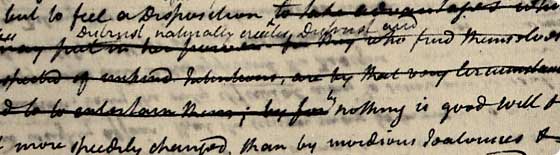 but to feel a Disposition to take advantages which
Distrust naturally creates Distrust and
may put in her power. for they who find themselves
spected of unkind Intentions, are by that very Circumstan
d to entertain them; by far by nothing is good will
more speedily changed, than by invidious Jealousies &